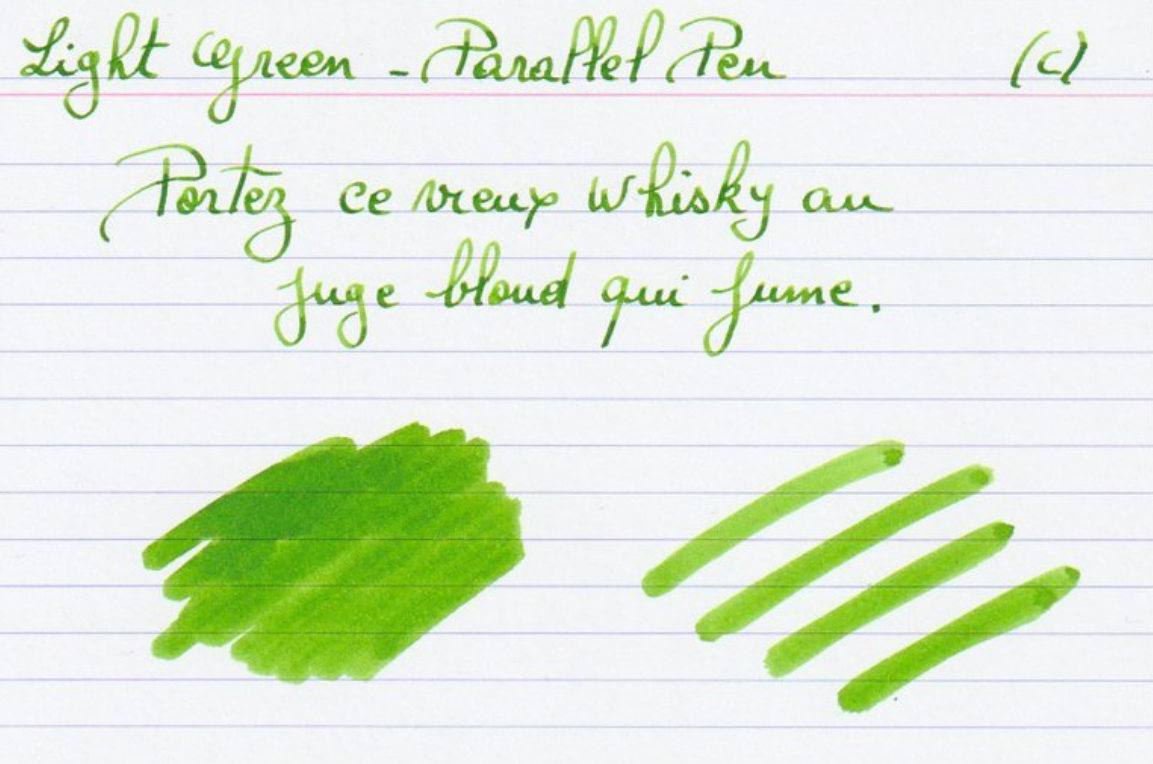 Light Green - Parallel Pen (c)
Portez ce vieux whisky au
juge blond qui fume.